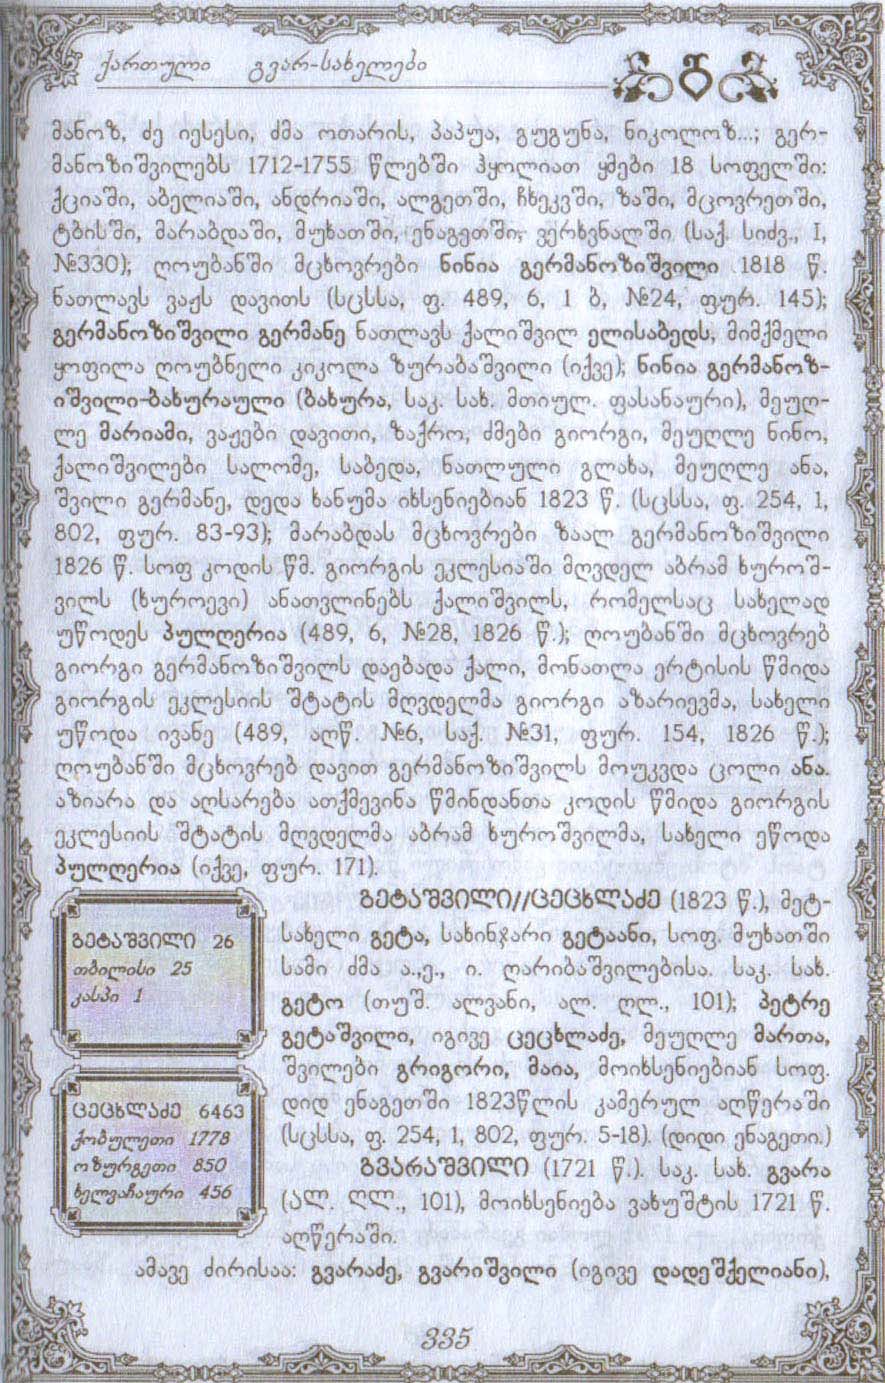 ქართული გვარ-სახელები
მანოზ, ძე იესესი, ძმა ოთარის, პაპუა, გუგუნა, ნიკოლოზ...; გერ-
მანოზიშვილებს 1712-1755 წლებში ჰყოლიათ ყმები 18 სოფელში:
ქციაში, აბელიაში, ანდრიაში, ალგეთში, ჩხეკვში, ზაში, მცოვრეთში,
ტბისში, მარაბდაში, მუხათში, ენაგეთში, ვერხვნალში (საქ. სიძვ., I,
№330); ღოუბანში მცხოვრები ნინია გერმანოზიშვილი 1818 წ.
ნათლავს ვაჟს დავითს (სცსსა, ფ. 489, 6, 1 ბ, №24, ფურ. 145);
გერმანოზიშვილი გერმანე ნათლავს ქალიშვილ ელისაბედს, მიმქმელი
ყოფილა ღოუბნელი კიკოლა ზურაბაშვილი (იქვე); ნინია გერმანოზ-
იშვილი-ბახურაული (ბახურა, საკ. სახ. მთიულ. ფასანაური), მეუღ-
ლე მარიამი, ვაჟები დავითი, ზაქრო, ძმები გიორგი, მეუღლე ნინო,
ქალიშვილები სალომე, საბედა, ნათლული გლახა, მეუღლე ანა,
შვილი გერმანე, დედა ხანუმა იხსენიებიან 1823 წ. (სცსსა, ფ. 254, 1,
802, ფურ. 83-93); მარაბდას მცხოვრები ზაალ გერმანოზიშვილი
1826 წ. სოფ კოდის წმ. გიორგის ეკლესიაში მღვდელ აბრამ ხუროშ-
ვილს (ხუროევი) ანათვლინებს ქალიშვილს, რომელსაც სახელად
უწოდეს პულღერია (489, 6, №28, 1826 წ.); ღოუბანში მცხოვრებ
გიორგი გერმანოზიშვილს დაებადა ქალი, მონათლა ერტისის წმიდა
გიორგის ეკლესიის შტატის მღვდელმა გიორგი აზარიევმა, სახელი
უწოდა ივანე (489, აღწ. №6, საქ. №31, ფურ. 154, 1826 წ.);
ღოუბანში მცხოვრებ დავით გერმანოზიშვილს მოუკვდა ცოლი ანა.
აზიარა და აღსარება ათქმევინა წმინდანთა კოდის წმიდა გიორგის
ეკლესიის შტატის მღვდელმა აბრამ ხუროშვილმა, სახელი ეწოდა
პულღერია (იქვე, ფურ. 171).
გეტაშვილი//ცეცხლაძე (1823 წ.), მეტ-
სახელი გეტა, სახინჯარი გეტაანი, სოფ. მუხათში
სამი ძმა ა.,ე., ი. ღარიბაშვილებისა. საკ. სახ.
გეტო (თუშ. ალვანი, ალ. ღლ., 101); პეტრე
გეტაშვილი, იგივე ცეცხლაძე, მეუღლე მართა,
შვილები გრიგორი, მაია, მოიხსენიებიან სოფ.
დიდ ენაგეთში 1823წლის კამერულ აღწერაში
(სცსსა, ფ. 254, 1, 802, ფურ. 5-18). (დიდი ენაგეთი.)
გეტაშვილი 26
თბილისი 25
კასპი 1
ცეცხლაძე 6463
ქობულეთი 1778
ოზურგეთი 850
ხელვაჩაური 456
გვარაშვილი (1721 წ.). საკ. სახ. გვარა
(ალ. ღლ., 101), მოიხსენიება ვახუშტის 1721 წ.
აღწერაში.
ამავე ძირისაა: გვარაძე, გვარიშვილი (იგივე დადეშქელიანი),
335